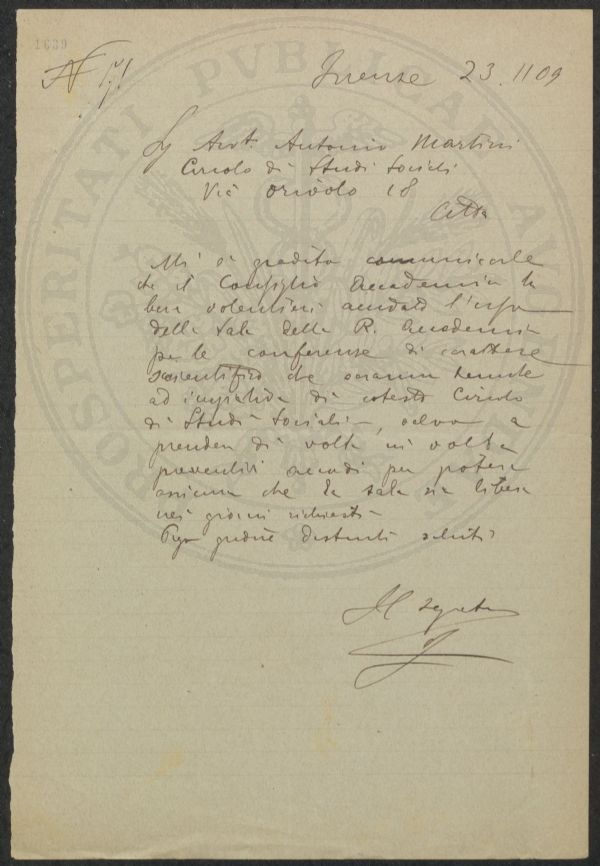 1639
N 171
Firenze 23.11.09
Sig. Avv. Antonio Martini
Circolo di Studi Sociali
Via Oriuolo 18
Città
Mi è gradito comunicarle
che il Consiglio Accademico ha
ben volentieri accordato l'uso
della Sala della R. Accademia
per le conferenze di carattere
scientifico che saranno tenute
ad iniziativa di cotesto Circolo
di Studi Sociali, salvo a
prender di volta in volta
preventivi accordi per potersi
assicurar che la sala sia libera
nei giorni richiesti
gradire distinti saluti
Il Segretario
PROSPERITATI PVBLICAE